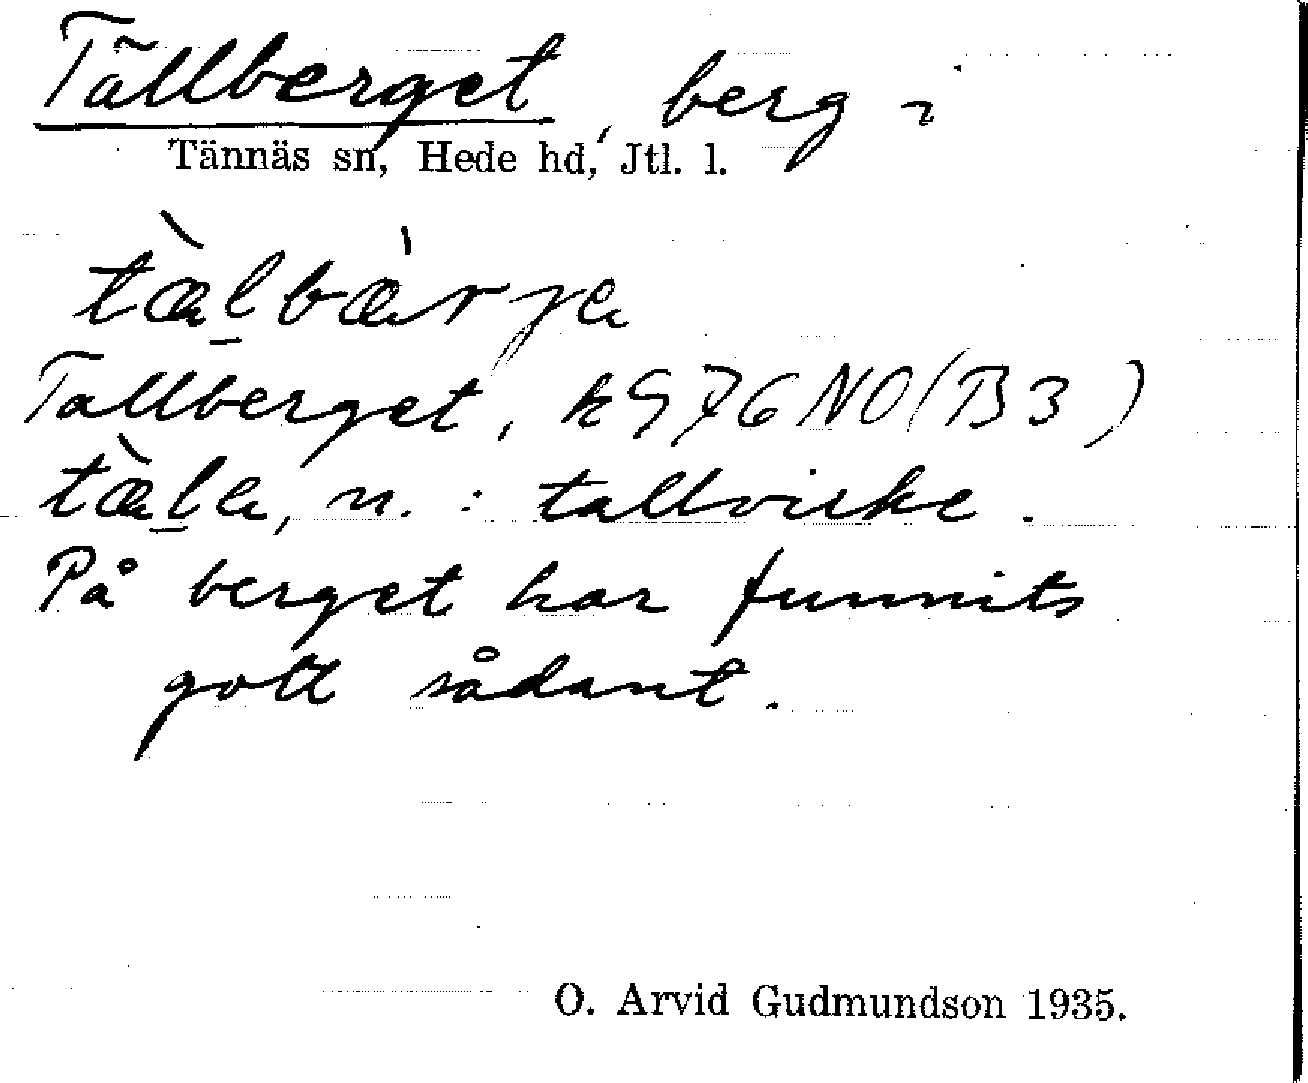 Tällberget, berg i
Tännäs sn, Hede hd, Jtl. l.
tæ̀l̠bæ̀rje
Tallberget, k976NO(B3)
tæ̀l̠e, n. : tallvirke.
På berget har funnits
gott sådant.
O. Arvid Gudmundson 1935.